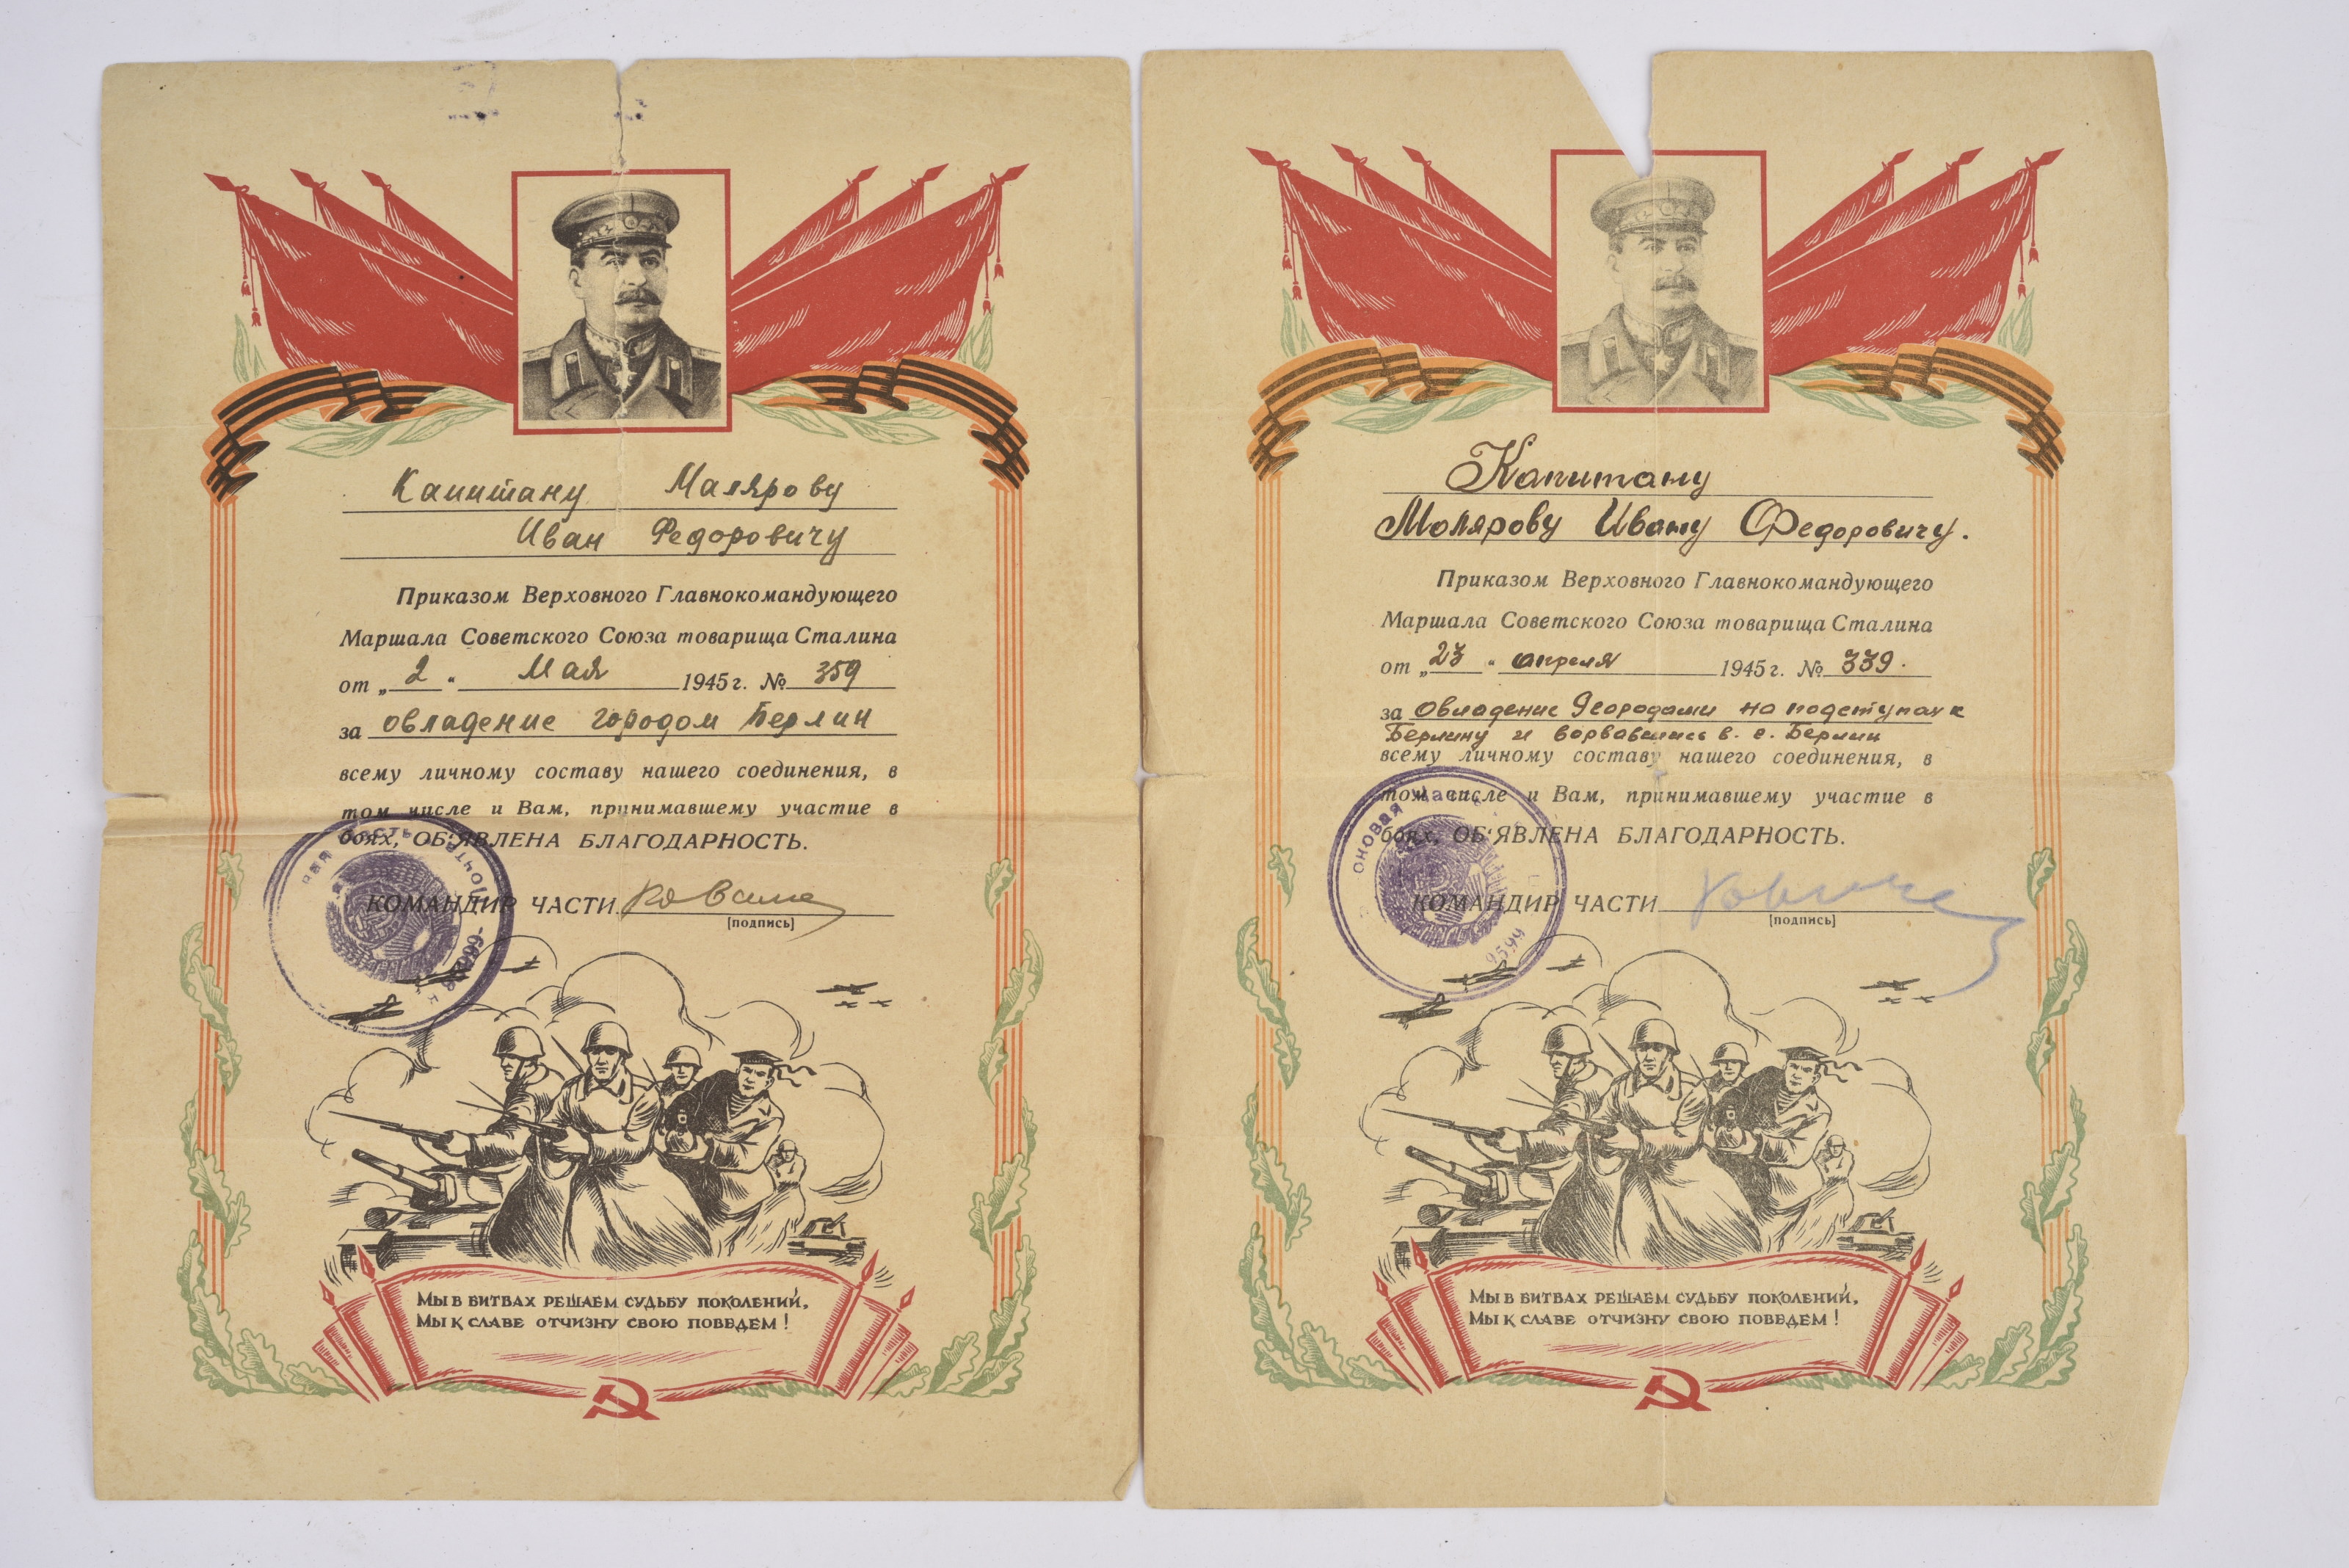 Капитану Малярову
Иван Федоровичу
Приказом Верховного Главнокомандующего
Маршала Советского Союза товарища Сталина
от „2“ Мая 1945 г. № 359
за овладение городом Берлин
всему личному составу нашего соединения, в
том числе и Вам, принимавшему участие в
боях, ОБ'ЯВЛЕНА БЛАГОДАРНОСТЬ.
КОМАНДИР ЧАСТИ
[подпись]
МЫ В БИТВАХ РЕШАЕМ СУДЬБУ ПОКОЛЕНИЙ,
МЫ К СЛАВЕ ОТЧИЗНУ СВОЮ ПОВЕДЕМ!
Капитану
Молярову Ивану Федоровичу.
Приказом Верховного Главнокомандующего
Маршала Советского Союза товарища Сталина
от „23“ апреля 1945 г. № 339.
за Овладение 9 городами на подступах к
Берлину и ворвавшись в г. Берлин
всему личному составу нашего соединения, в
том числе и Вам, принимавшему участие в
боях, ОБ'ЯВЛЕНА БЛАГОДАРНОСТЬ.
часть
КОМАНДИР ЧАСТИ
[подпись]
МЫ В БИТВАХ РЕШАЕМ СУДЬБУ ПОКОЛЕНИЙ,
МЫ К СЛАВЕ ОТЧИЗНУ СВОЮ ПОВЕДЕМ!